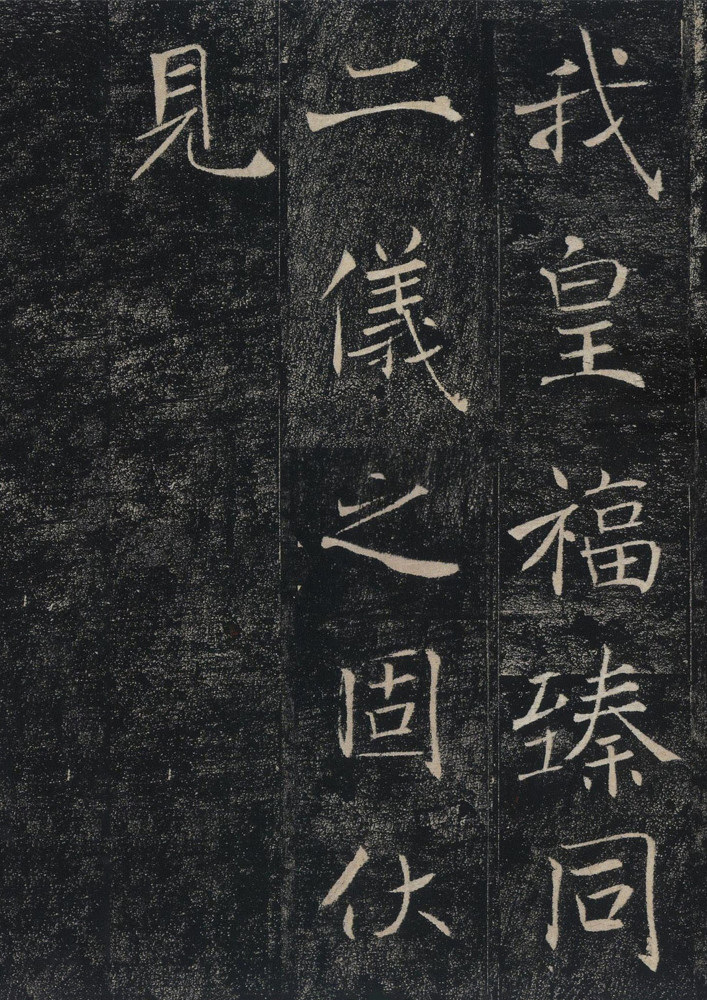 我皇福臻同
二儀之固伏
見